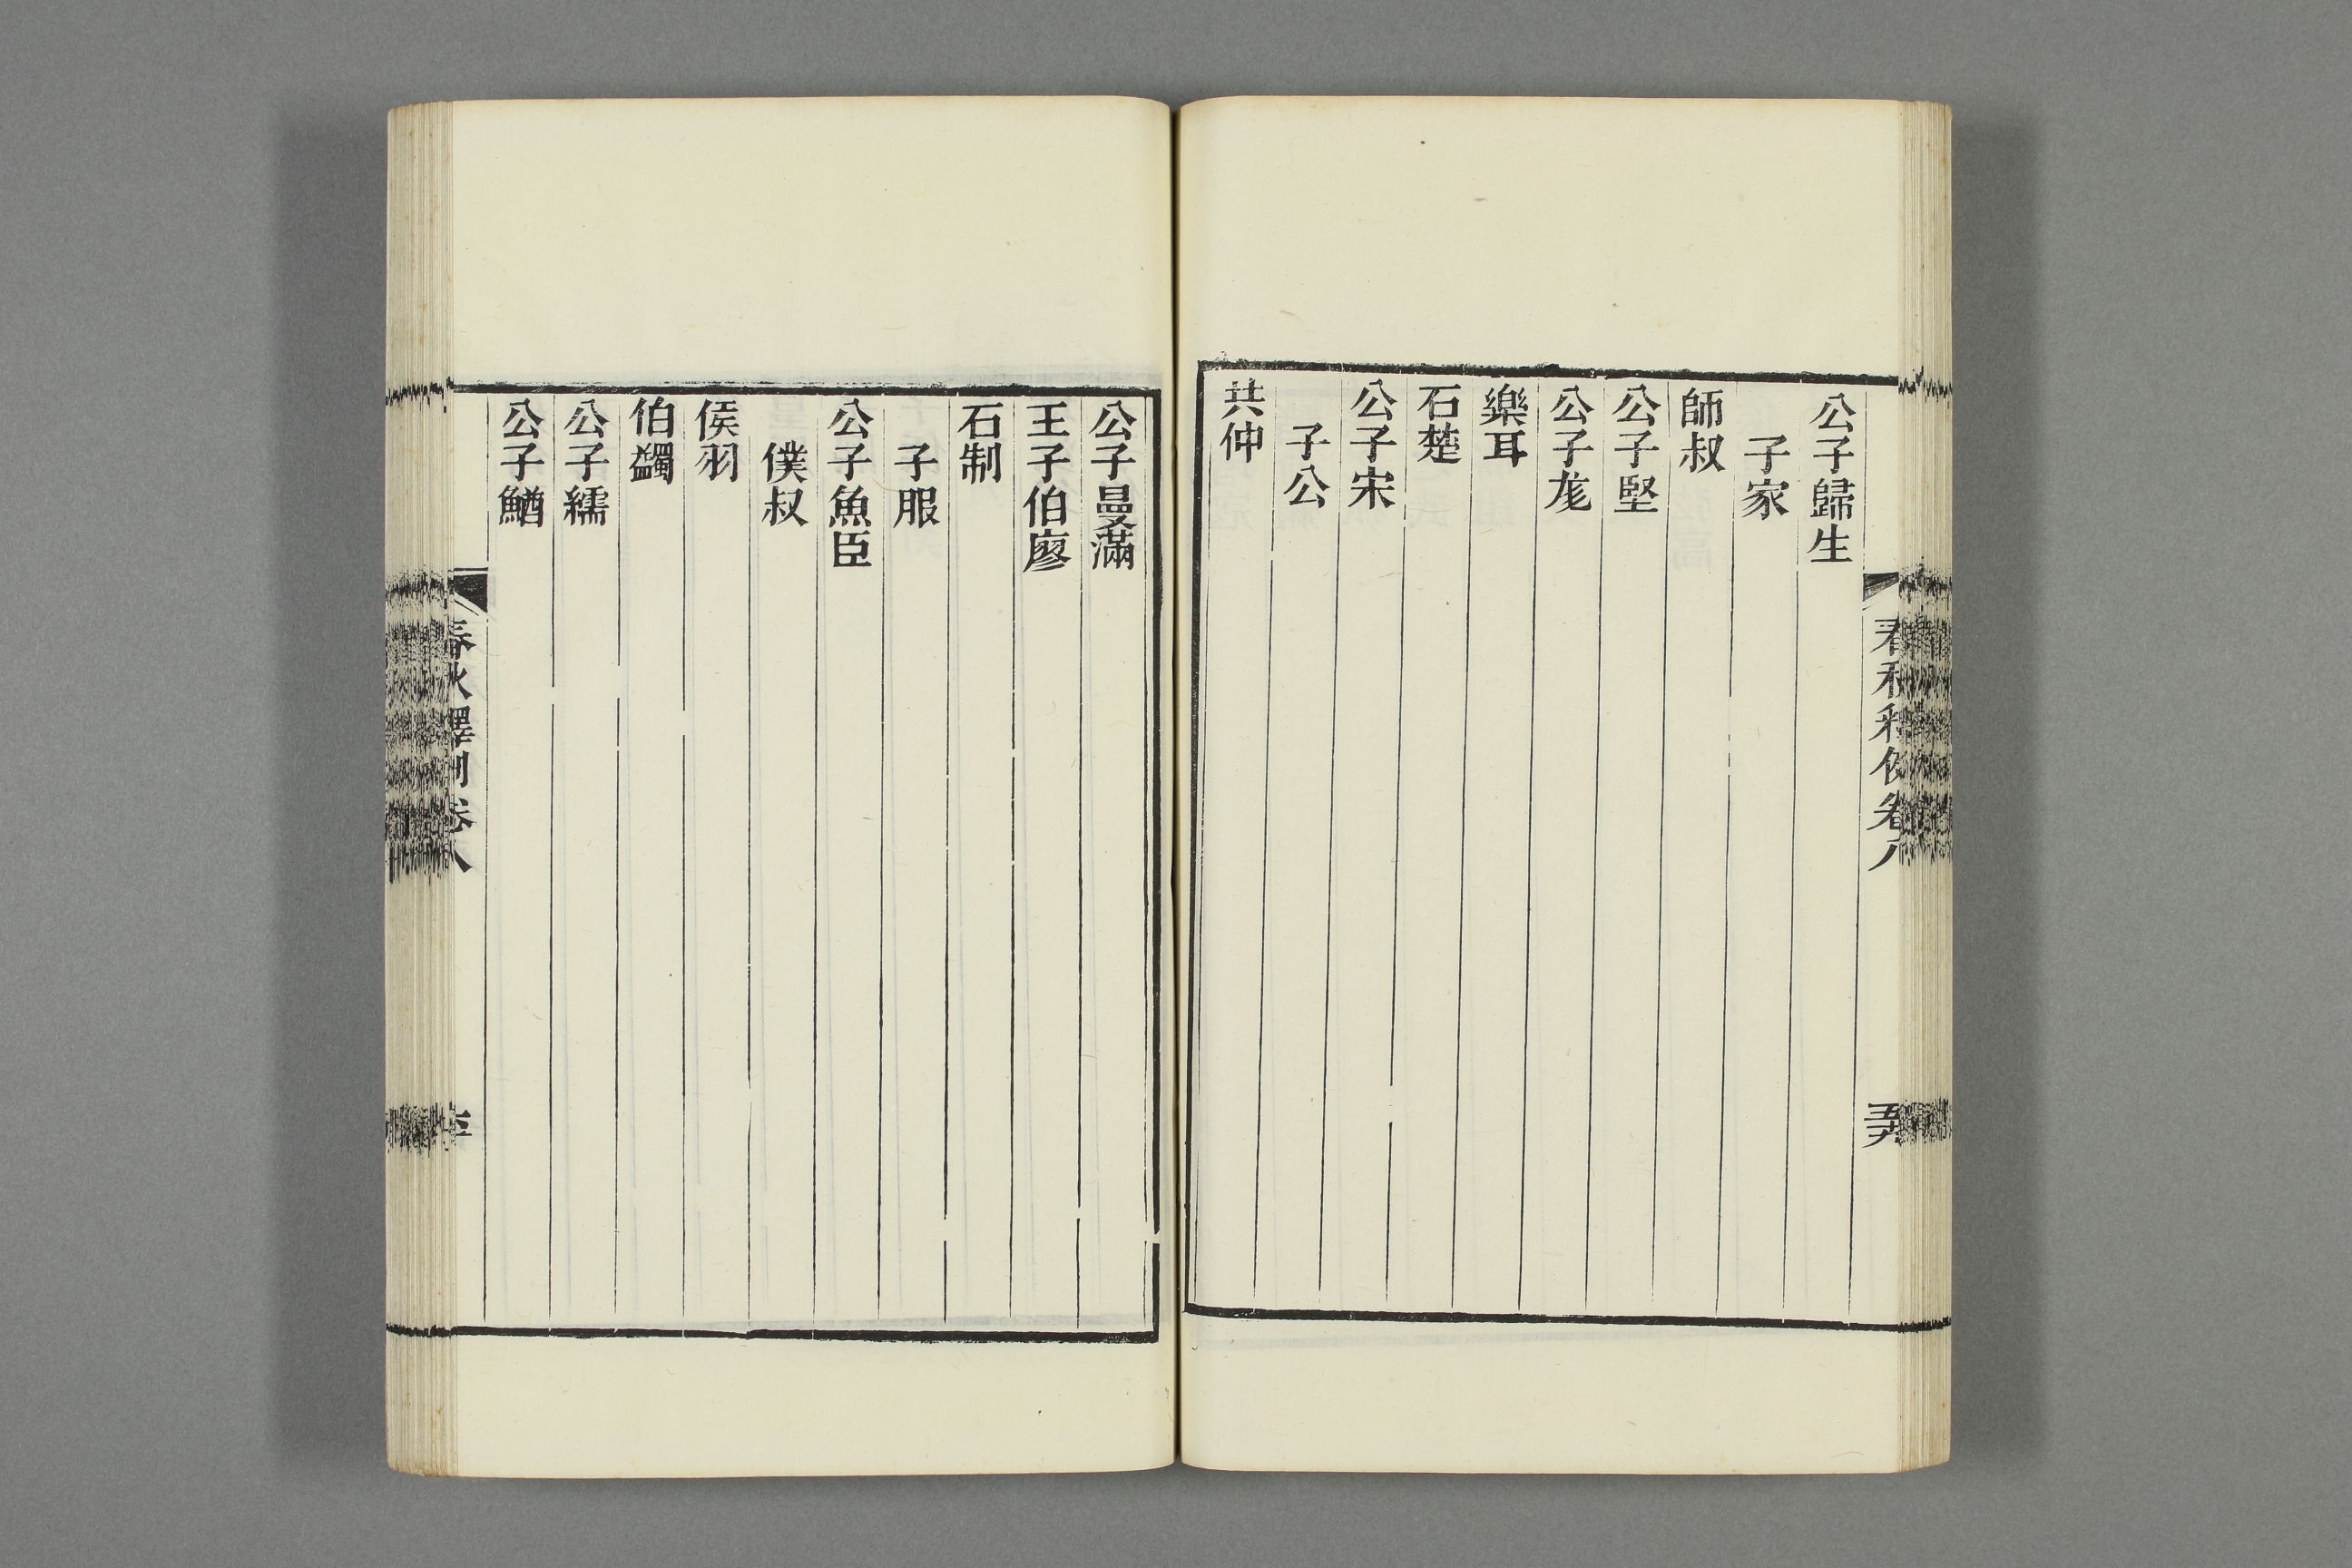 公子歸生
子家
師叔
公子堅
公子尨
樂耳
石楚
公子宋
子公
共仲
公子曼滿
王子伯廖
石制
子服
公子魚臣
僕叔
侯羽
伯蠲
公子繻
公子鰌
春秋釋例卷八